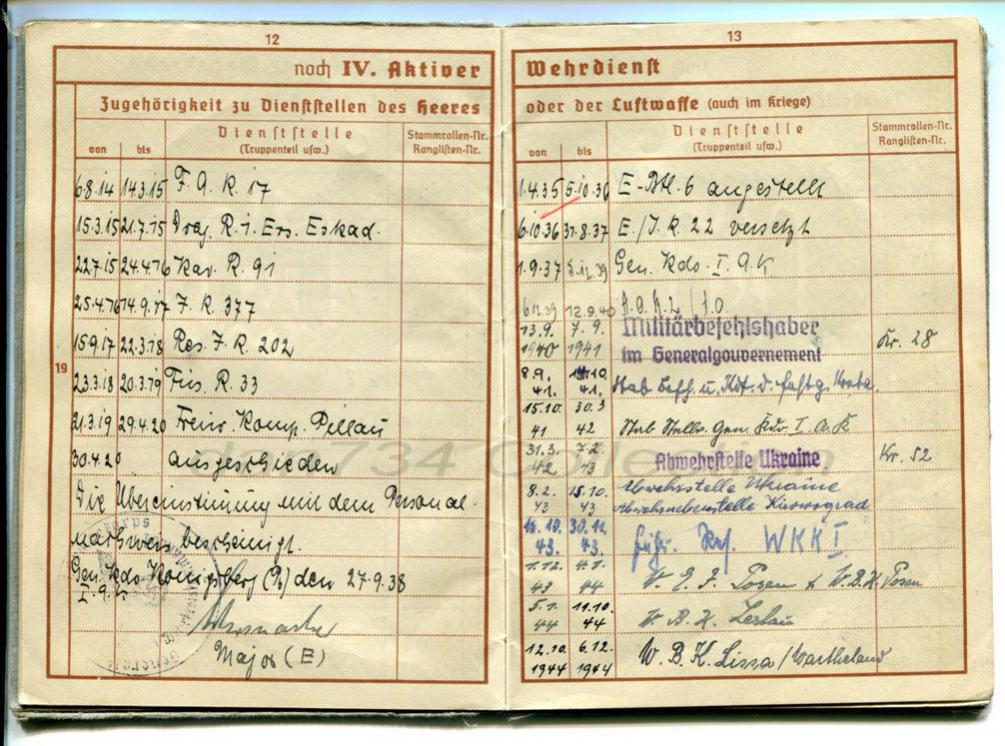 12
noch IV. Aktiver
Zugehörigkeit zu Dienststellen des Heeres
von bis Dienststelle (Truppenteil usw.) Stammrollen-Nr. Ranglisten-Nr.
6.8.14 14.3.15 F. A. R. 17
15.3.15 21.7.15 Drag. R. 1. Ers. Eskad.
22.7.15 24.4.16 Kav. R. 91
25.4.16 14.9.17 J. R. 377
15.9.17 22.3.18 Res. J. R. 202
19
23.3.18 20.3.19 Füs. R. 33
21.3.19 29.4.20 Freiw. Komp. Pillau
30.4.20 ausgeschieden
Die Übereinstimmung mit dem Personal-
nachweis bescheinigt.
Gen. Kdo. Königsberg (Pr) den 27.9.38
I. A. K.
Major (E)
13
Wehrdienst
oder der Luftwaffe (auch im Kriege)
von bis Dienststelle (Truppenteil usw.) Stammrollen-Nr. Ranglisten-Nr.
1.4.35 5.10.36 E-Btl. 6 angestellt
6.10.36 31.8.37 E./J. R. 22 versetzt
1.9.37 Gen. Kdo. I. A. K
12.9.40 A.O.K.
13.9. 1940 7.9. 1941 Militärbefehlshaber im Generalgouvernement Kr. 28
8.9. 41. 10. 41. Stab Befh. u. Kdt. d.
15.10. 41 30.3 42 Stab Stellv. Gen. Kdo. I. A. K
31.3. 42 7.2. 43 Abwehrstelle Ukraine Kr. 52
8.2. 43 15.10. 43 Abwehrstelle Ukraine
Abwehrnebenstelle Kirowograd
16.10. 43. 30.11. 43. Führ. Res. WKK I
1.12. 43 4.1. 44 Posen W.B.K. Posen
5.1. 44 11.10. 44 W. B. K. Leslau
12.10. 1944 6.12. 1944 W. B. K. Lissa/Wartheland
734 Collection